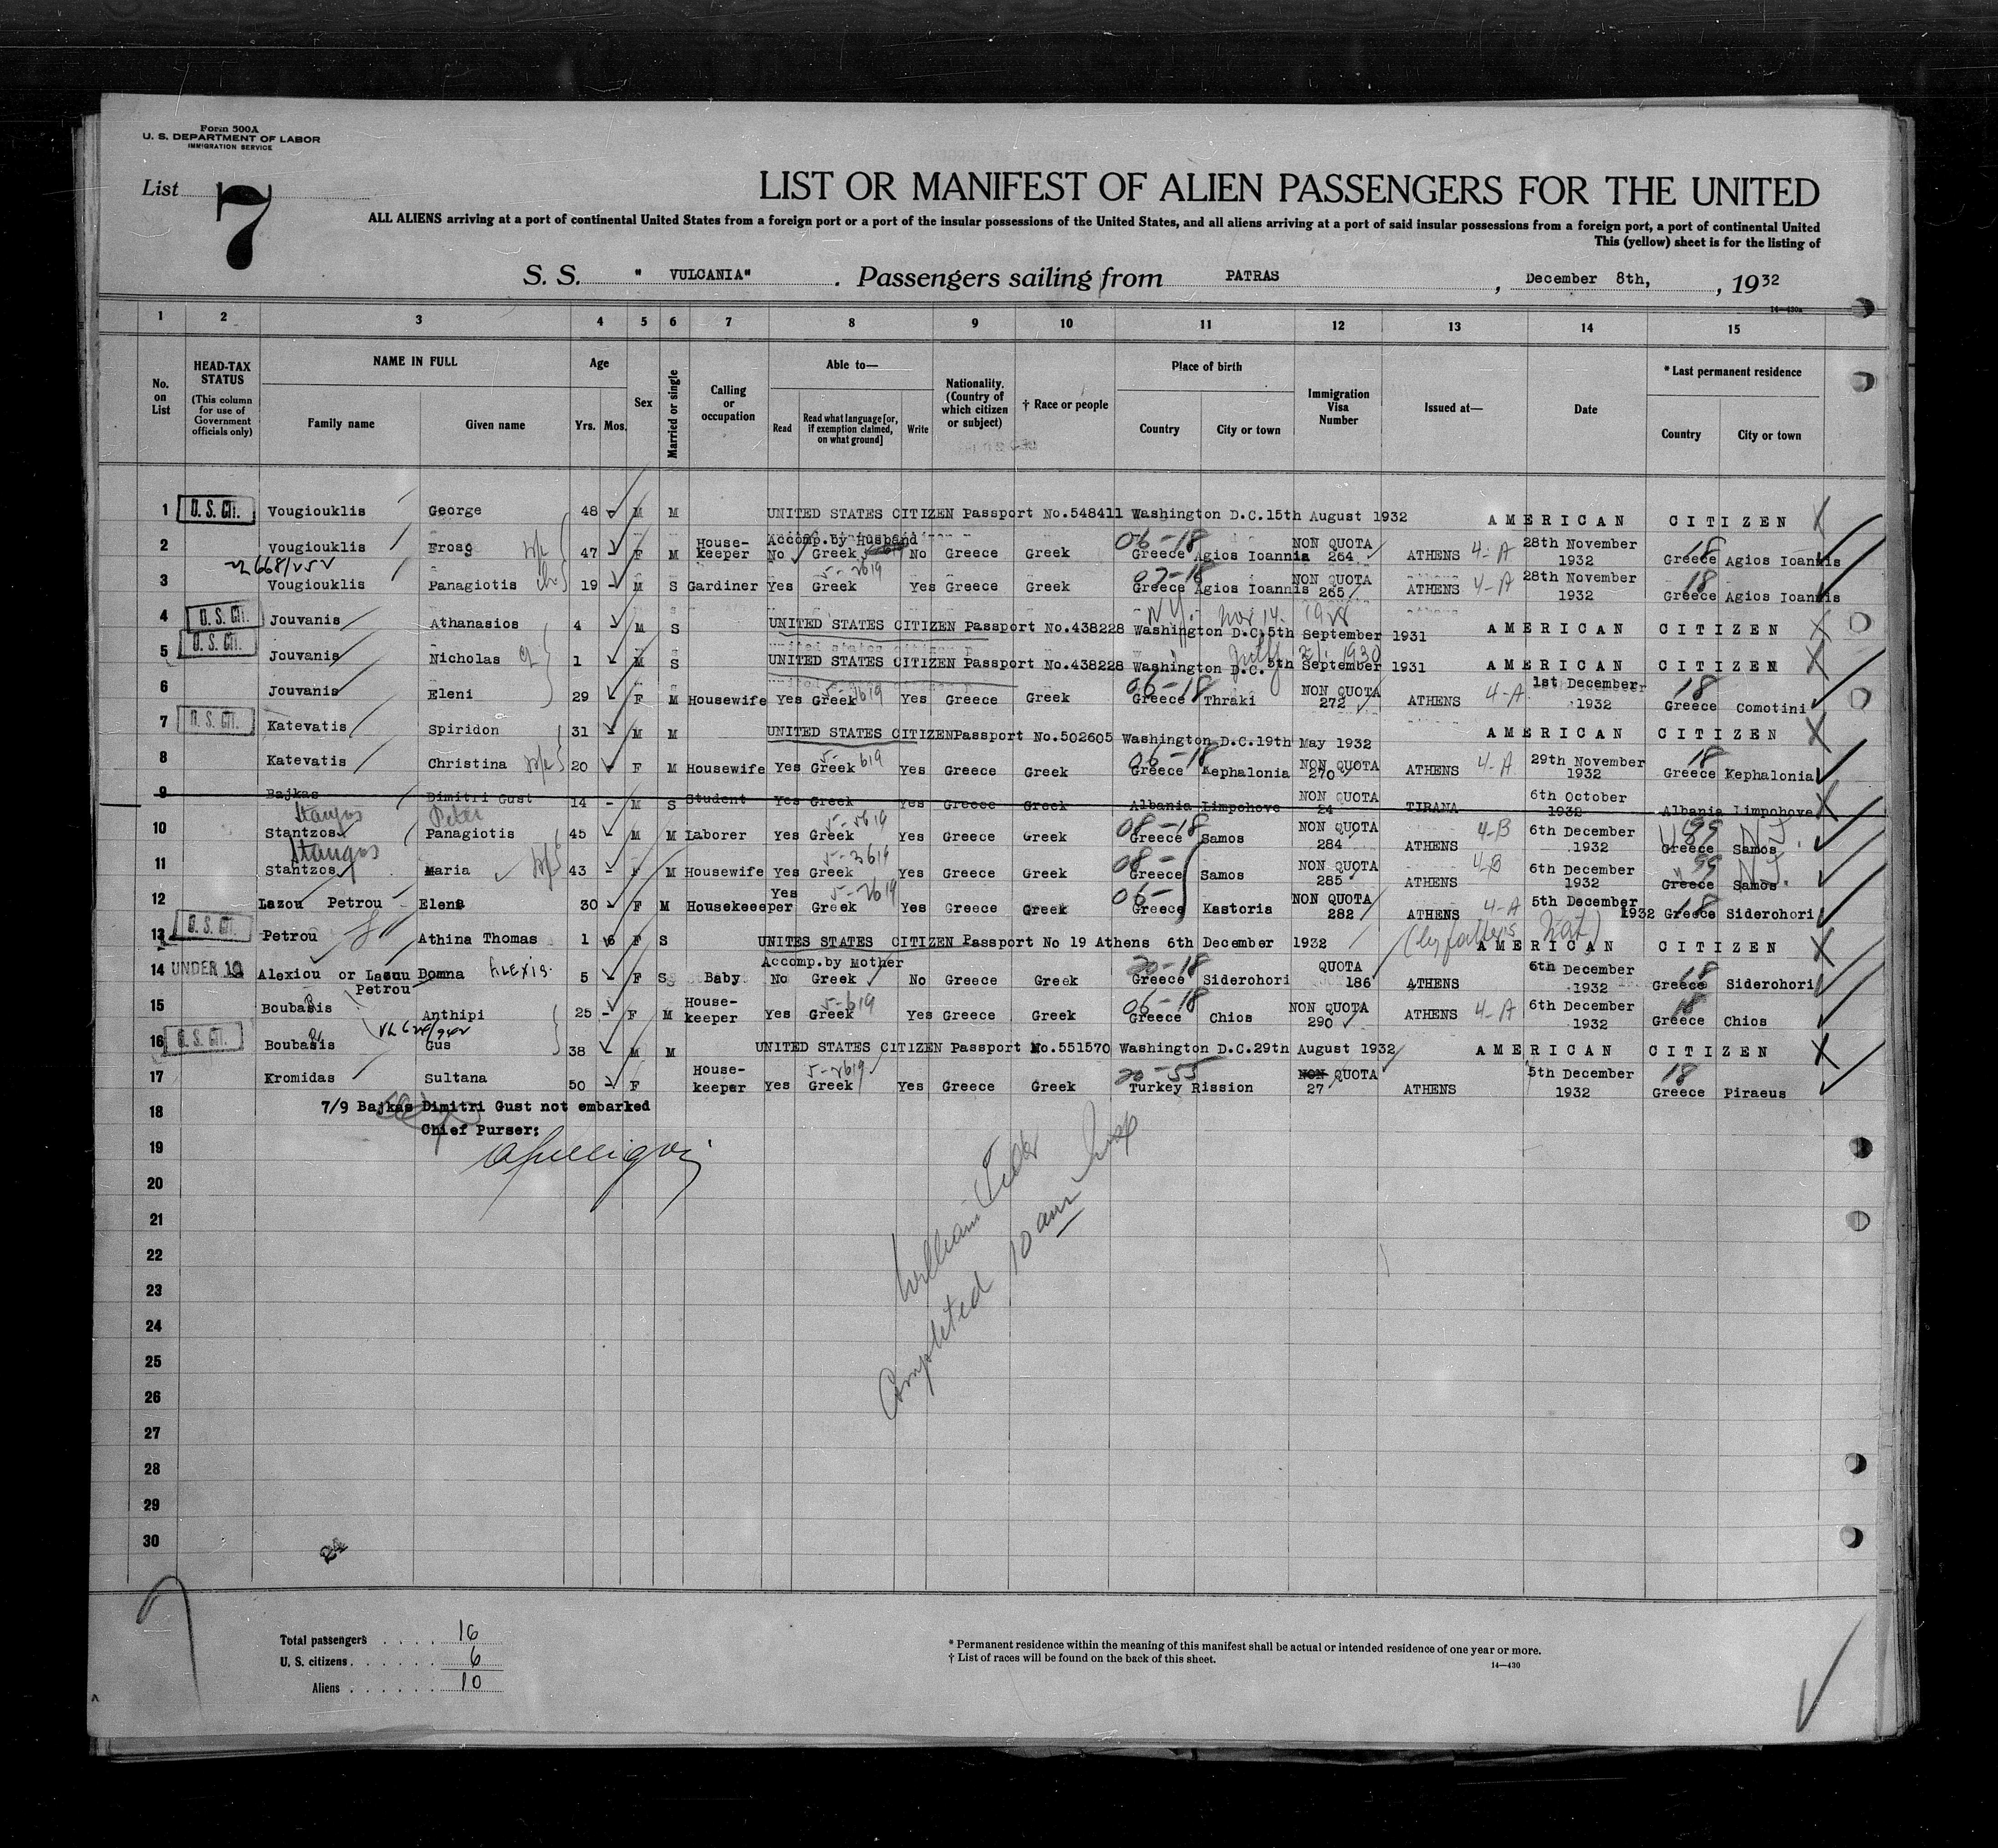 Form 500A
U. S. DEPARTMENT OF LABOR
IMMIGRATION SERVICE
List 7
LIST OR MANIFEST OF ALIEN PASSENGERS FOR THE UNITED
ALL ALIENS arriving at a port of continental United States from a foreign port or a port of the insular possessions of the United States, and all aliens arriving at a port of said insular possessions from a foreign port, a port of continental United
This (yellow) sheet is for the listing of
S. S. " VULCANIA" . Passengers sailing from PATRAS , December 8th, , 1932
14—430a
1 2 3 4 5 6 7 8 9 10 11 12 13 14 15
No. on List
HEAD-TAX STATUS (This column for use of Government officials only)
NAME IN FULL Family name Given name
Age Yrs. Mos.
Sex
Married or single
Calling or occupation
Able to— Read Read what language [or, if exemption claimed, on what ground] Write
Nationality. (Country of which citizen or subject)
† Race or people
Place of birth Country City or town
Immigration Visa Number
Issued at—
Date
* Last permanent residence Country City or town
1 U.S. Cit. Vougiouklis George 48 M M UNITED STATES CITIZEN Passport No.548411 Washington D.C.15th August 1932 AMERICAN CITIZEN X
2 Vougiouklis Froso 47 - F M House-keeper Accomp.by Husband No Greek No Greece Greek 06-18 Greece Agios Ioannis NON QUOTA 264 ATHENS 4-A 28th November 1932 18 Greece Agios Ioannis
3 Vougiouklis Panagiotis 19 - M S Gardiner Yes Greek 5-2619 Yes Greece Greek 07-18 Greece Agios Ioannis NON QUOTA 265 ATHENS 4-A 28th November 1932 18 Greece Agios Ioannis
4 U.S. Cit. Jouvanis Athanasios 4 - M S UNITED STATES CITIZEN Passport No.438228 Washington D.C.5th September 1931 N.Y. Nov 14. 1928 AMERICAN CITIZEN X
5 U.S. Cit. Jouvanis Nicholas 1 M S UNITED STATES CITIZEN Passport No.438228 Washington D.C.5th September 1931 1930 AMERICAN CITIZEN X
6 Jouvanis Eleni 29 F M Housewife Yes Greek Yes Greece Greek 06-18 Greece Thraki NON QUOTA 272 ATHENS 4-A 1st December 1932 18 Greece Comotini
7 U.S. Cit. Katevatis Spiridon 31 M M UNITED STATES CITIZEN Passport No.502605 Washington D.C.19th May 1932 AMERICAN CITIZEN X
8 Katevatis Christina 20 F M Housewife Yes Greek 5-619 Yes Greece Greek 06-18 Greece Kephalonia NON QUOTA 270 ATHENS 4-A 29th November 1932 18 Greece Kephalonia
9 Bajkas Dimitri Gust 14 - M S Student Yes Greek Yes Greece Greek Albania Limpohove NON QUOTA 24 TIRANA 6th October 1932 Albania Limpohove X
Stangos Peter
10 Stantzos Panagiotis 45 - M M Laborer Yes Greek Yes Greece Greek 08-18 Greece Samos NON QUOTA 284 ATHENS 4-B 6th December 1932 99 Greece Samos N.J.
Stangos
11 Stantzos Maria 43 - F M Housewife Yes Greek Yes Greece Greek 08- Greece Samos NON QUOTA 285 ATHENS 4-B 6th December 1932 99 Greece Samos N.J.
12 Lazou Petrou Elene 30 - F M Housekeeeper Yes Greek 5-2619 Yes Greece Greek 06- Greece Kastoria NON QUOTA 282 ATHENS 4-A 5th December 1932 18 Greece Siderohori
13 U.S. Cit. Petrou Athina Thomas 1 6 F S UNITES STATES CITIZEN Passport No 19 Athens 6th December 1932 (by father's Nat) AMERICAN CITIZEN X
14 UNDER 10 Alexiou or Lazou Petrou Domna ALEXIS. 5 - F S Baby Accomp.by Mother No Greek No Greece Greek 20-18 Greece Siderohori QUOTA 186 ATHENS 6th December 1932 18 Greece Siderohori
15 Boubasis Anthipi 25 - F M House-keeper Yes Greek 5-619 Yes Greece Greek 06-18 Greece Chios NON QUOTA 290 ATHENS 4-A 6th December 1932 18 Greece Chios
16 U.S. Cit. Boubasis Gus 38 - M M UNITED STATES CITIZEN Passport No.551570 Washington D.C.29th August 1932 AMERICAN CITIZEN X
17 Kromidas Sultana 50 - F House-keeper Yes Greek 5-2619 Yes Greece Greek 20-55 Turkey Rission NON QUOTA 27 ATHENS 5th December 1932 18 Greece Piraeus
18 7/9 Bajkas Dimitri Gust not embarked
Chief Purser:
19
20
21
22
23
24
25
26
27
28
29
30
William
Completed 10 am
Total passengers . . . . 16
U. S. citizens . . . . . . 6
Aliens . . . . . . 10
* Permanent residence within the meaning of this manifest shall be actual or intended residence of one year or more.
† List of races will be found on the back of this sheet.
14—430